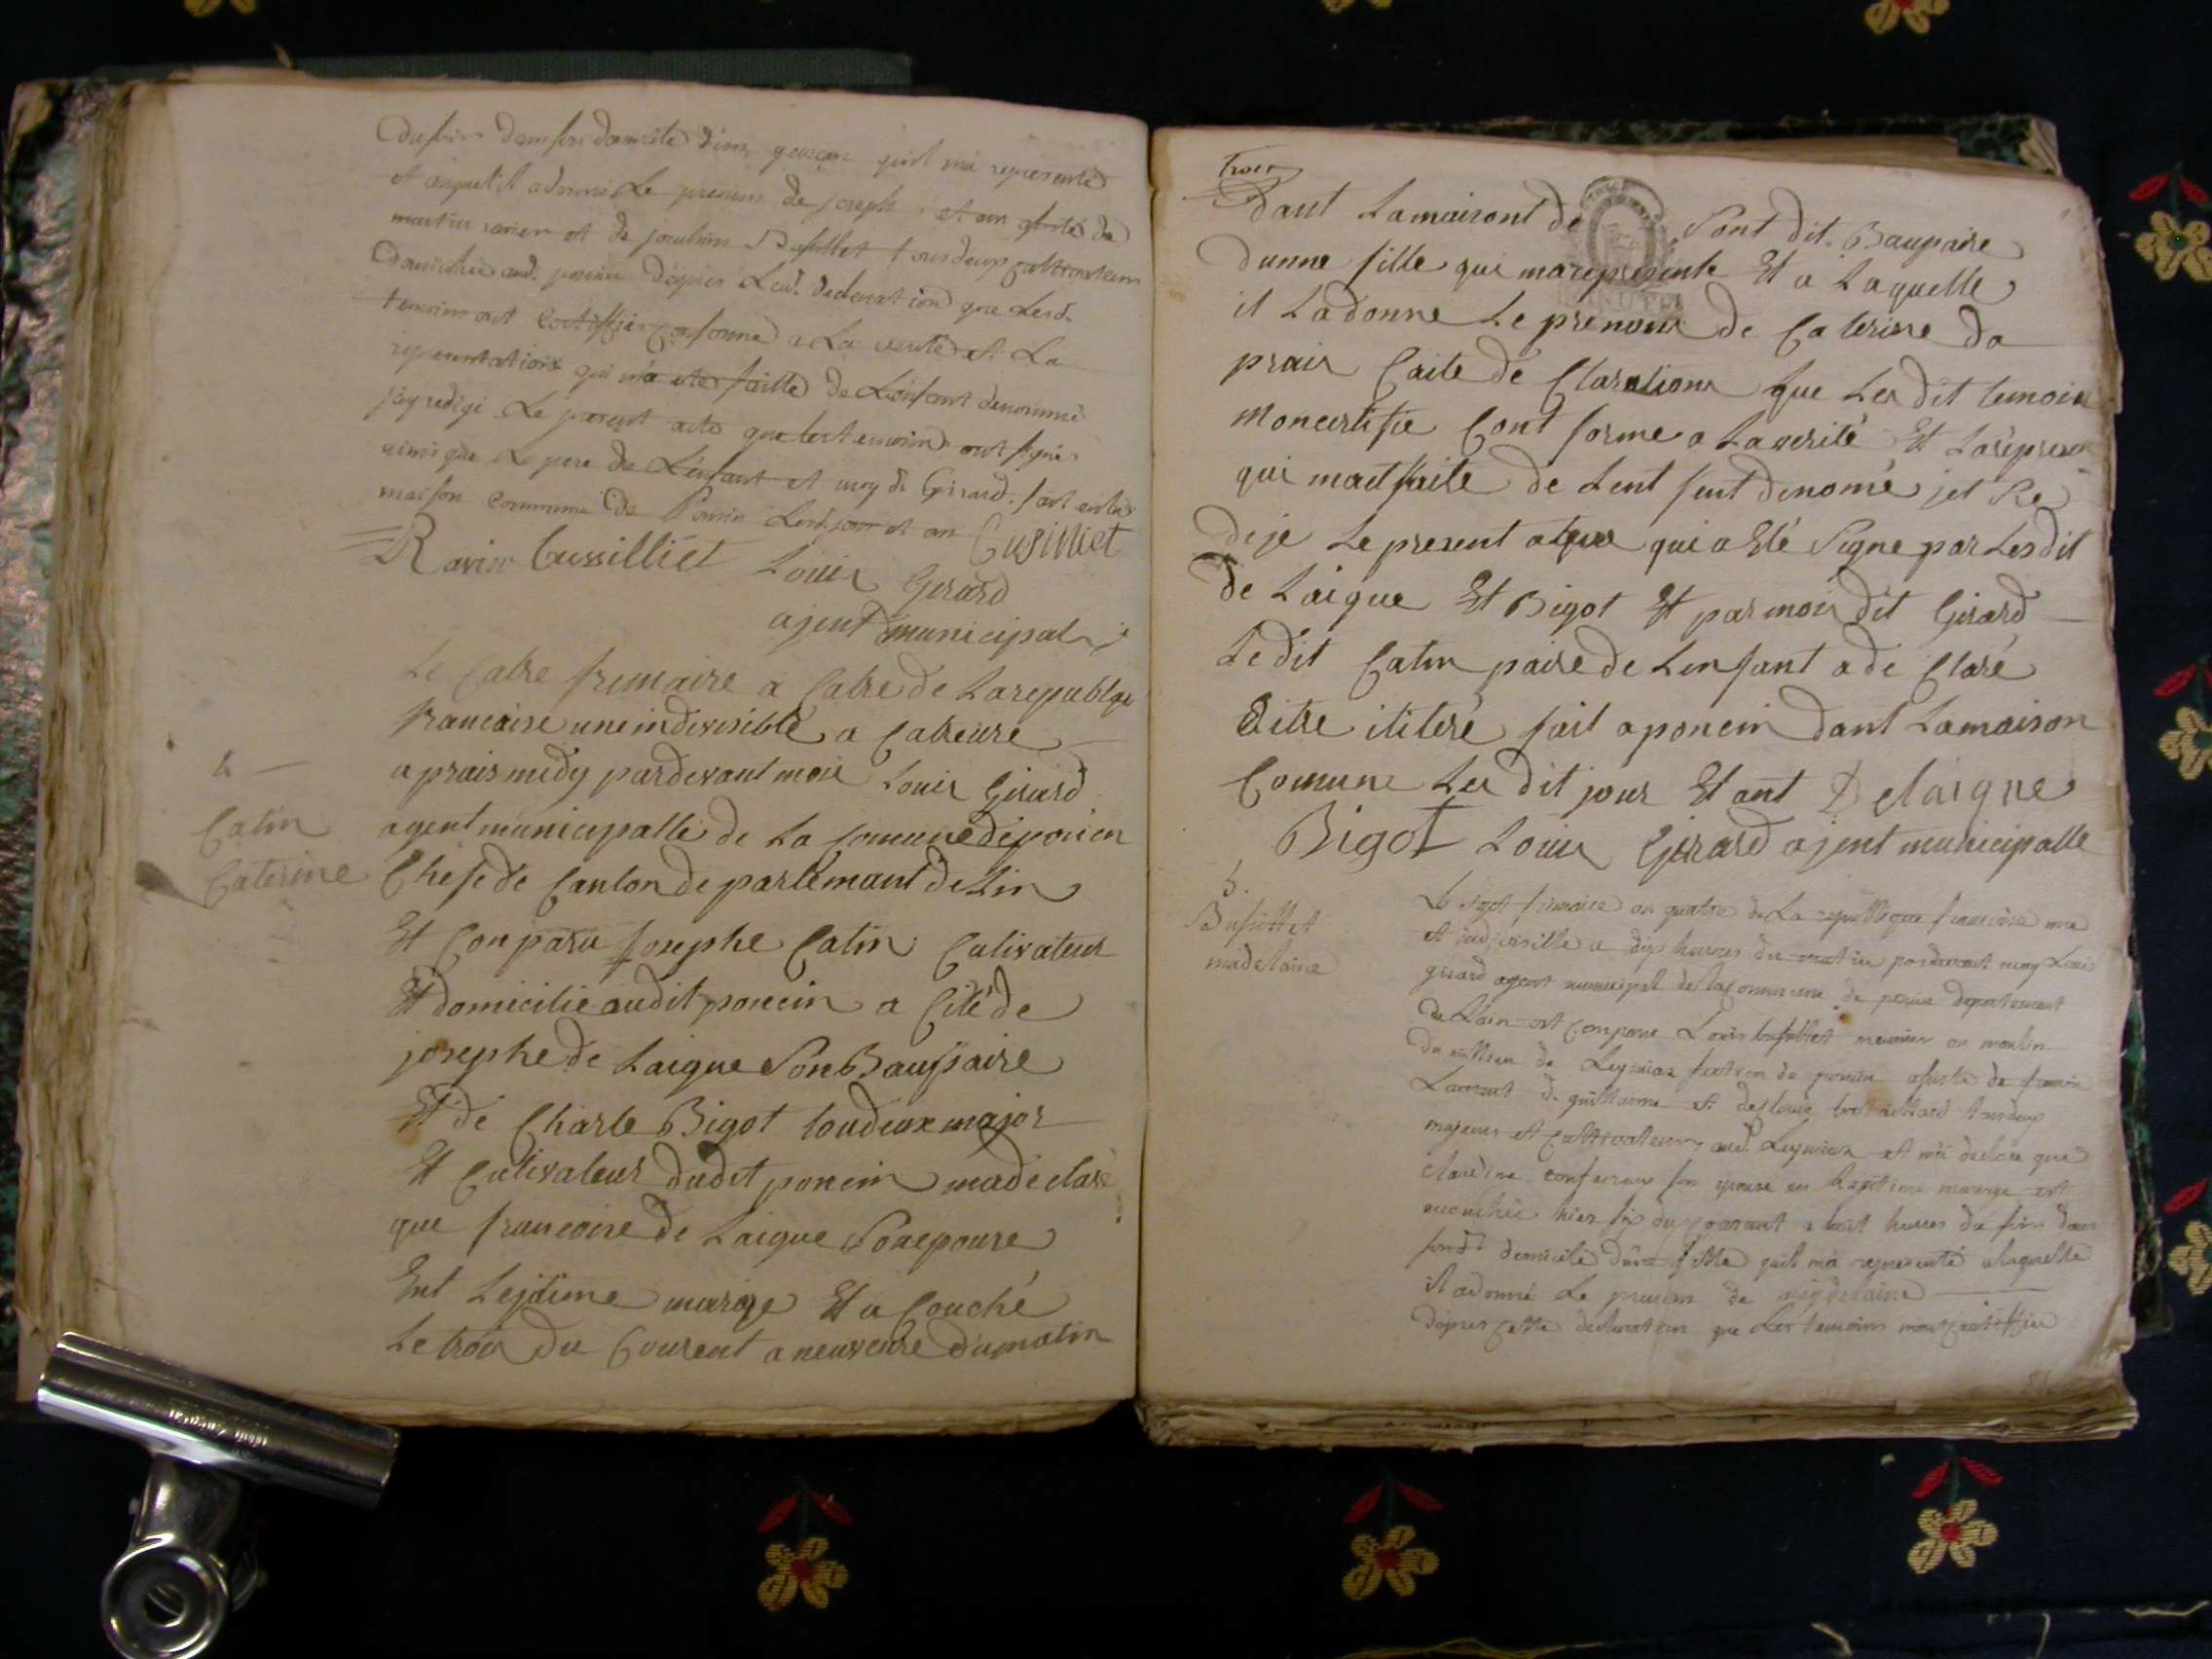 du soir dans son domicile d'un garçon qu'il m'a representé
et auquel il a donné Le prenom de joseph et en
martin ravier et de joachim Bussillet tous deux cultivateurs
domicilié aud. poncin d'après Lad. declaration que Lesd.
temoins ont Certiffiér Conforme a La verité et La
représentation qui m'a eté faitte de L'enfant denommé
j'ay redigé Le present acte que les temoins ont signé
ainsi que Le pere de L'enfant et moy dt Girard. fait en la
maison Commune de Poncin Lesd. jour et an Cusilliet
Ravier Cussilliet Louis Girard
ajent municipal
Le Catre frimaire a Catre de La republiqe
francaise une indivisible a Catreure
a prais midy pardevant moie Louis Girard
4
Catin
Caterine
agent municipalle de La Comune de poncin
Chefe de Canton de partemant de Lin
Et Conparu Josephe Catin Culivateur
Et domicilie audit poncin a Cité de
josephe de Laigue Son Baupaire
Et de Charle Bigot toudeux major
Et Culivateur dudit poncin made claré
que francoise de Laigue Sonepouse
Ent Lejitime marige Et a Couché
Le trois du Courent a neuveure du matin
Trois
dant Lamaisont de Sont dit Baupaire
dunne fille qui marepresente Et a Laquelle
il Ladonne Le prenom de Caterine da
prais Caite de Claration que Les dit temoin
Moncertifie Cont forme a Laverité Et Larépresen
qui mait faite de Lent fent denomé jet Re
dije Le present atque qui a Eté Signe par Lesdit
de Laigue Et Bigot Et par moi dit Girard
Ledit Catin paire de Lenfant a de Claré
Eitre ititeré fait a poncin dant Lamaison
Comune Les dit jour Et ant Delaigue
Bigot Louis Girard ajent municipalle
5.
Busillet
madelaine
Le sept frimaire an quatre de La republique francaise une
et indivisille a dix heures du matin pardevant moy Louis
girard agent municipal de la Commune de poncin departement
de L'ain est Comparu Louis busillet meunier au moulin
du millieu de Leymiaz section de poncin assisté de
Laurent de guillaume et de Louis tous deux
majeurs et Cultivateurs aud. Leymiaz et m'a declaré que
claudine son epouse en legitime mariage est
accouchée hier six du courant a huit heures du soir dans
sond. domicile d'une fille quil m'a representé a laquelle
il a donné Le prenom de magdelaine
d'apres Cette declaration que Les temoins mont Certiffiée